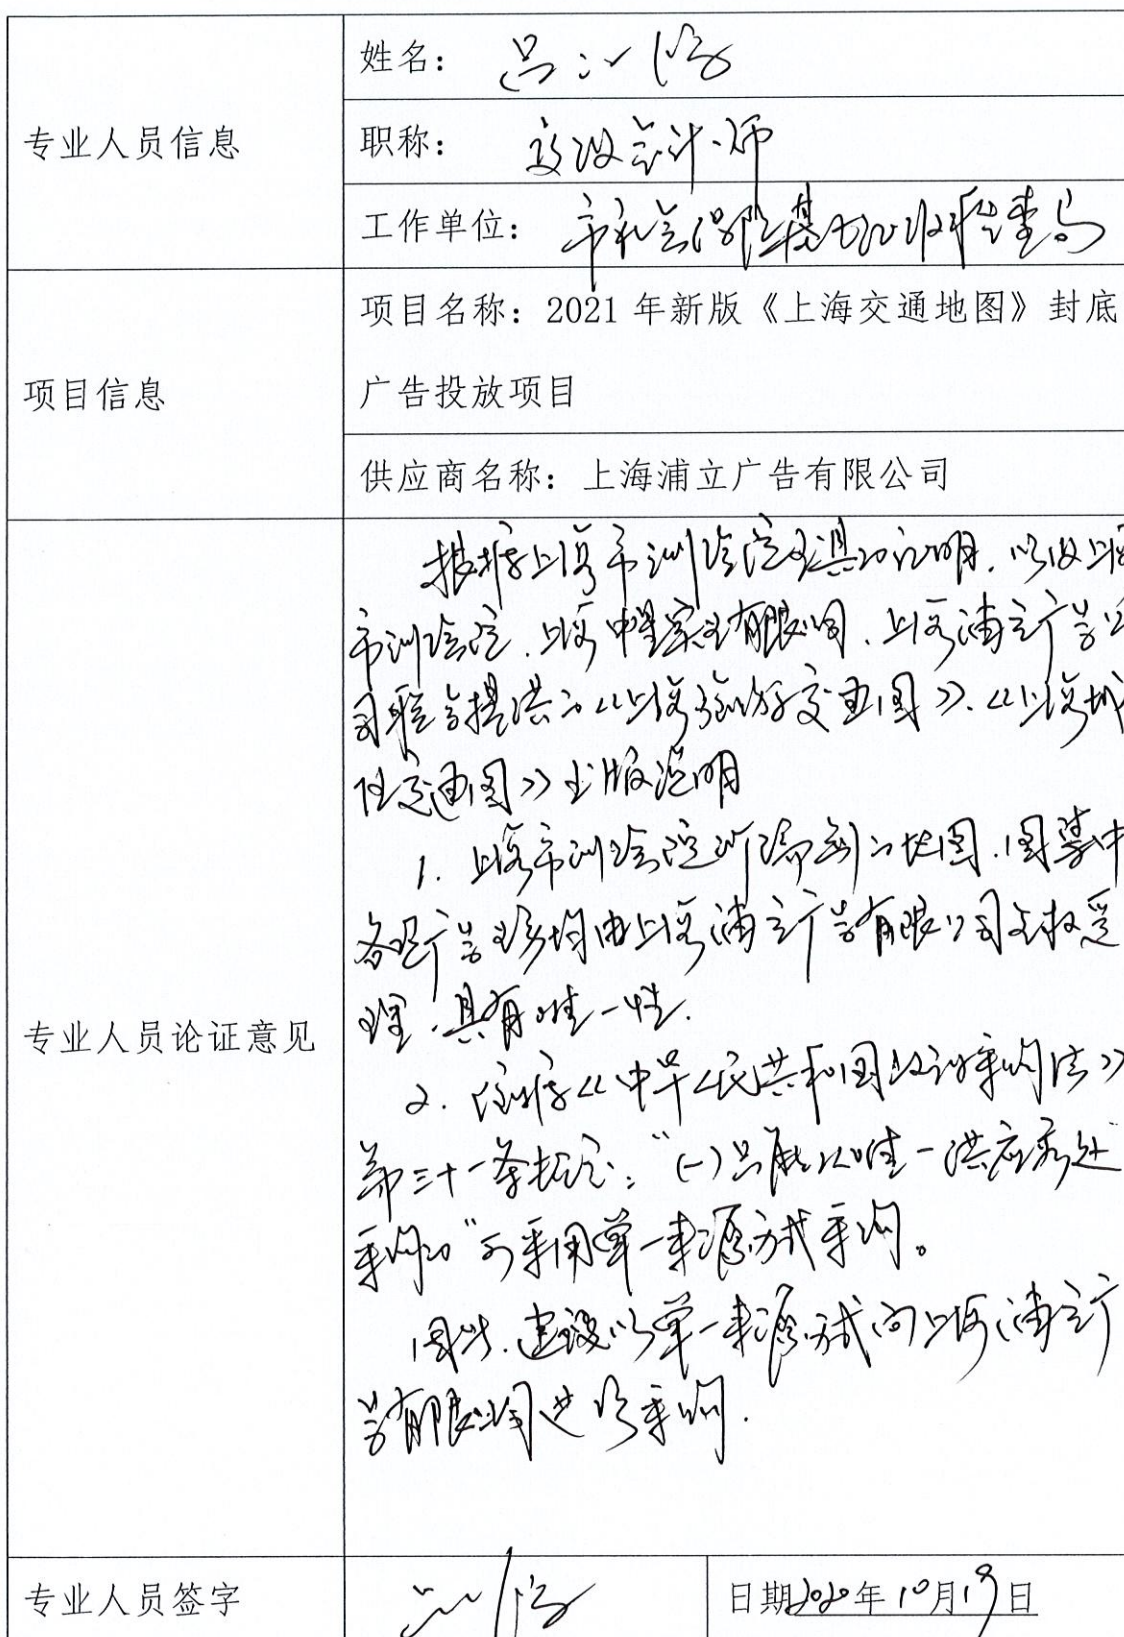 专业人员信息
姓名：吕
职称：高级会计师
工作单位：市社会保险基金
项目信息
项目名称：2021年新版《上海交通地图》封底
广告投放项目
供应商名称：上海浦立广告有限公司
专业人员论证意见
根据上海市测绘院出具的证明，以及上海
市测绘院、上海中星实业有限公司、上海浦立广告公
司联合提供的《上海旅游交通图》、《上海城
通图》出版说明
1. 上海市测绘院所编制的地图、图集中
各项广告业务均由上海浦立广告有限公司全权受
理，具有唯一性.
2. 依据《中华人民共和国政府采购法》
第三十一条规定：“（一）只能从唯一供应商处
采购的”可采用单一来源方式采购。
因此，建议以单一来源方式向上海浦立广
告有限公司进行采购.
专业人员签字
日期2020年10月19日